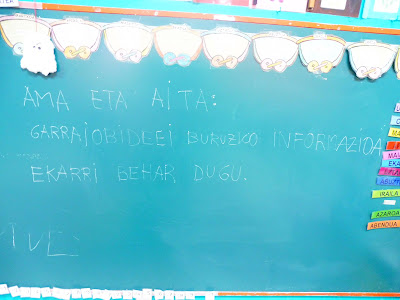 AMA ETA AITA:
GARRAIOBIDEEI BURUZKO INFORMAZIOA
EKARRI BEHAR DUGU.
IRAILA
AZAROA
ABENDUA